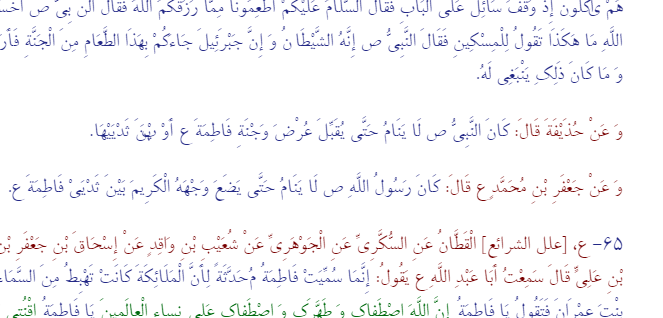 هُمْ يَأْكُلُونَ إِذْ وَقَفَ سَائِلٌ عَلَى الْبَابِ فَقَالَ السَّلَامُ عَلَيْكُمْ أَطْعِمُونَا مِمَّا رَزَقَكُمُ اللَّهُ فَقَالَ النَّبِيُّ ص اخْسَ
اللَّهِ مَا هَكَذَا تَقُولُ لِلْمِسْكِينِ فَقَالَ النَّبِيُّ ص إِنَّهُ الشَّيْطَانُ وَ إِنَّ جَبْرَئِيلَ جَاءَكُمْ بِهَذَا الطَّعَامِ مِنَ الْجَنَّةِ فَأَرَ
وَ مَا كَانَ ذَلِكَ يَنْبَغِي لَهُ.
وَ عَنْ حُذَيْفَةَ قَالَ: كَانَ النَّبِيُّ ص لَا يَنَامُ حَتَّى يُقَبِّلَ عُرْضَ وَجْنَةِ فَاطِمَةَ ع أَوْ بَيْنَ ثَدْيَيْهَا.
وَ عَنْ جَعْفَرِ بْنِ مُحَمَّدٍ ع قَالَ: كَانَ رَسُولُ اللَّهِ ص لَا يَنَامُ حَتَّى يَضَعَ وَجْهَهُ الْكَرِيمَ بَيْنَ ثَدْيَيْ فَاطِمَةَ ع.
۶۵- ع، [علل الشرائع‏] الْقَطَّانُ عَنِ السُّكَّرِيِّ عَنِ الْجَوْهَرِيِّ عَنْ شُعَيْبِ بْنِ وَاقِدٍ عَنْ إِسْحَاقَ بْنِ جَعْفَرِ بْنِ
بْنِ عَلِيٍّ قَالَ سَمِعْتُ أَبَا عَبْدِ اللَّهِ ع يَقُولُ: إِنَّمَا سُمِّيَتْ فَاطِمَةُ مُحَدَّثَةً لِأَنَّ الْمَلَائِكَةَ كَانَتْ تَهْبِطُ مِنَ السَّمَاءِ
بِنْتَ عِمْرَانَ فَتَقُولُ يَا فَاطِمَةُ إِنَّ اللَّهَ اصْطَفَاكِ وَ طَهَّرَكِ وَ اصْطَفَاكِ عَلَى نِسَاءِ الْعَالَمِينَ يَا فَاطِمَةُ اقْنُتِي